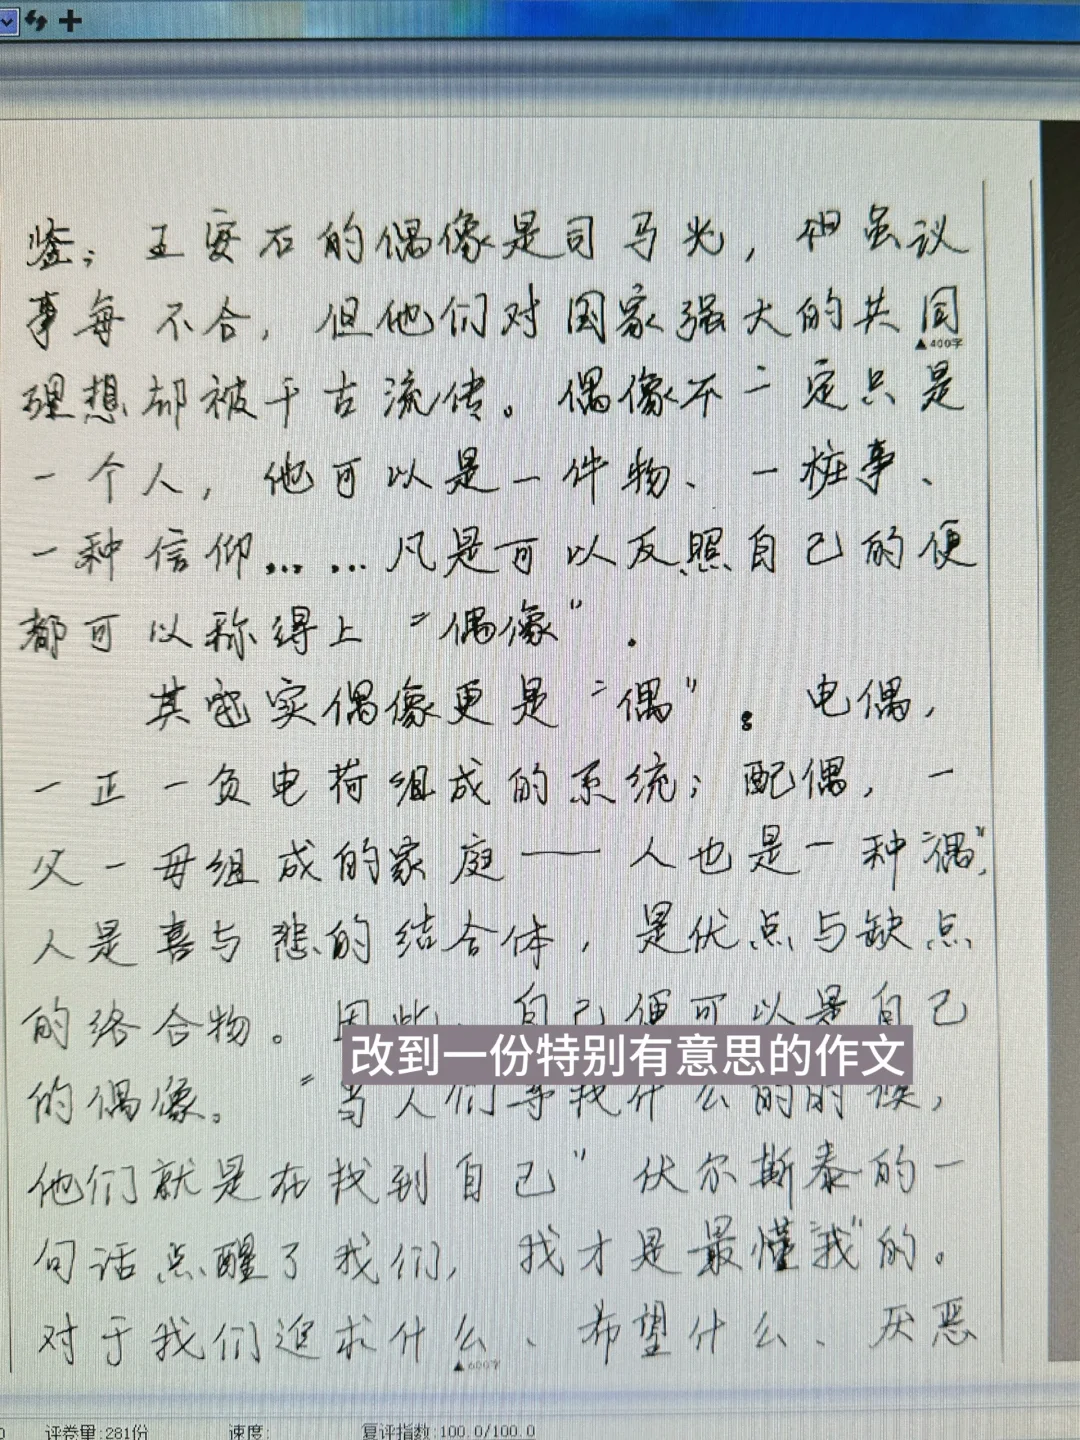 鉴；王安石的偶像是司马光，祖虽议
事每不合，但他们对国家强大的共同
▲400字
理想都被千古流传。偶像不一定只是
一个人，他可以是一件物、一桩事、
一种信仰……凡是可以反照自己的便
都可以称得上“偶像”.
其实偶像更是“偶”。电偶，
一正一负电荷组成的系统；配偶，一
父一母组成的家庭——人也是一种“偶”，
人是喜与悲的结合体，是优点与缺点
的络合物。因此，自己便可以是自己
改到一份特别有意思的作文
的偶像。“当人们寻找什么的时候，
他们就是在找到自己”伏尔斯泰的一
句话点醒了我们，我才是最懂“我”的。
对于我们追求什么、希望什么、厌恶
▲600字
评卷量:281份 速度: 复评指数:100.0/100.0